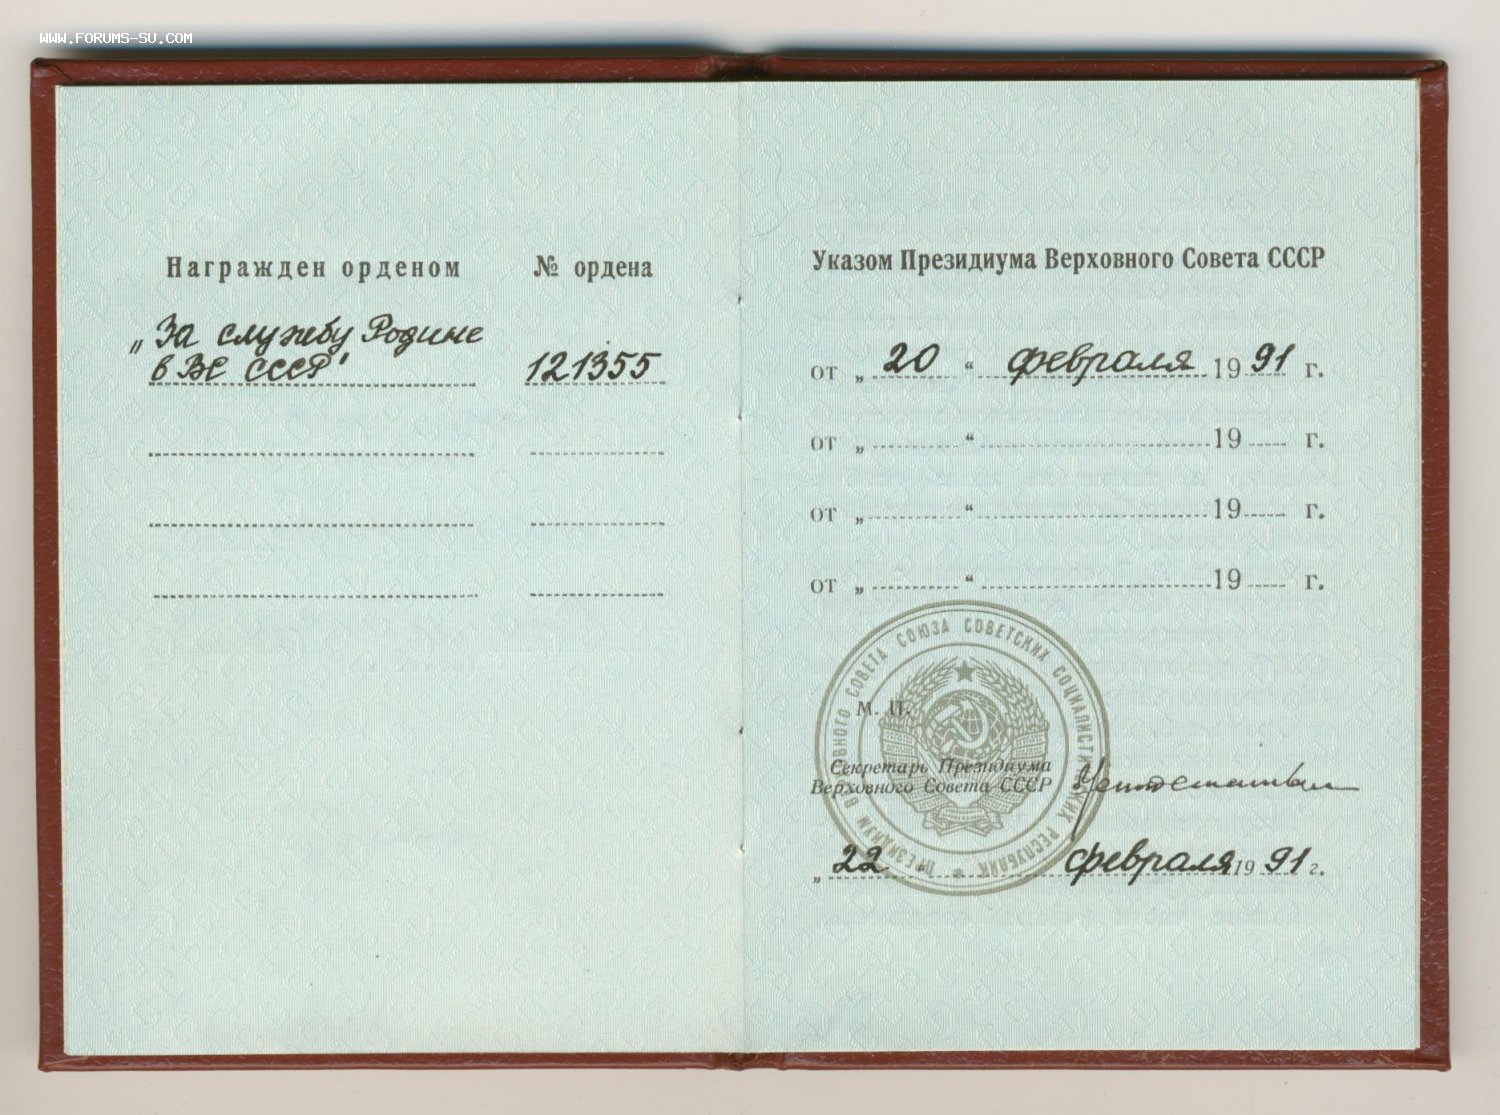 WWW.FORUMS-SU.COM
Награжден орденом
№ ордена
„За службу Родине
в ВС СССР"
121355
Указом Президиума Верховного Совета СССР
от „ 20 “ февраля 19 91 г.
от „ “ 19 г.
от „ “ 19 г.
от „ “ 19 г.
ПРЕЗИДИУМ ВЕРХОВНОГО СОВЕТА СОЮЗА СОВЕТСКИХ СОЦИАЛИСТИЧЕСКИХ РЕСПУБЛИК
М. П.
Секретарь Президиума
Верховного Совета СССР
„ 22 “ февраля 19 91 г.